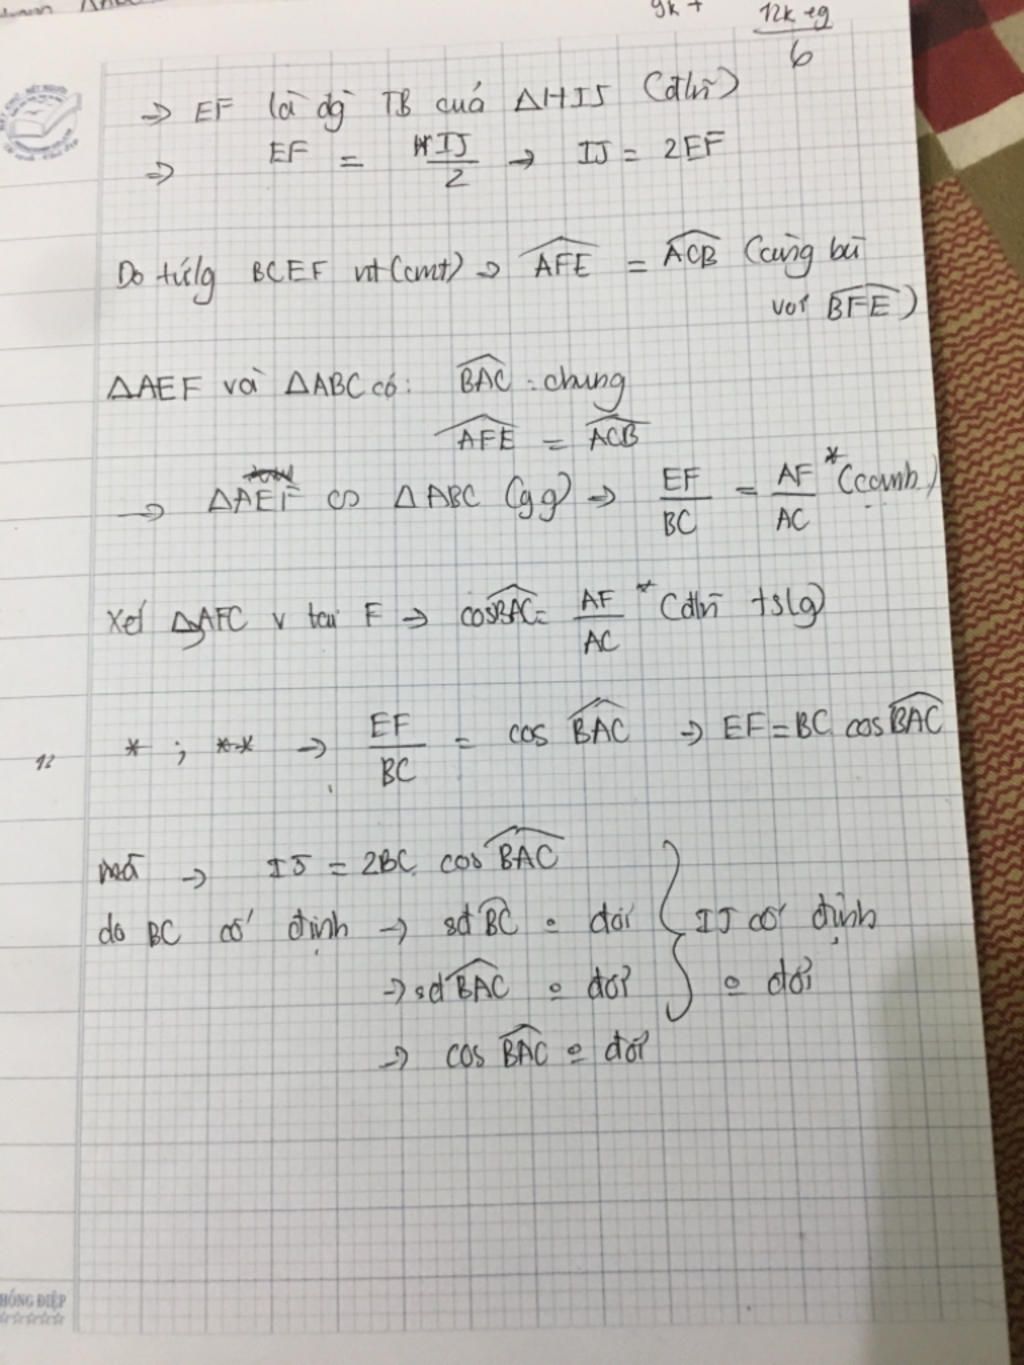 9k +
12k + g
6
→ EF là đg TB cuả ΔHIJ (đlni)
→ EF = IJ/2 → IJ = 2EF
Do tứ/g BCEF nt (cmt) → AFE = ACB (cùng bù
vơí BFE)
ΔAEF và ΔABC có: BAC : chung
AFE = ACB
→ ΔAEF ∽ ΔABC (gg) → EF/BC = AF/AC * (ccạnh)
Xét ΔAFC v taị F → cosBAC = AF/AC * (đlni tslg)
* ; ** → EF/BC = cos BAC → EF = BC cos BAC
12
mà → IJ = 2BC cos BAC
do BC cố định → sđ BC o đổi } IJ cố định
→ sđ BAC o đổi } o đổi
→ cos BAC o đổi
HỒNG ĐIỆP